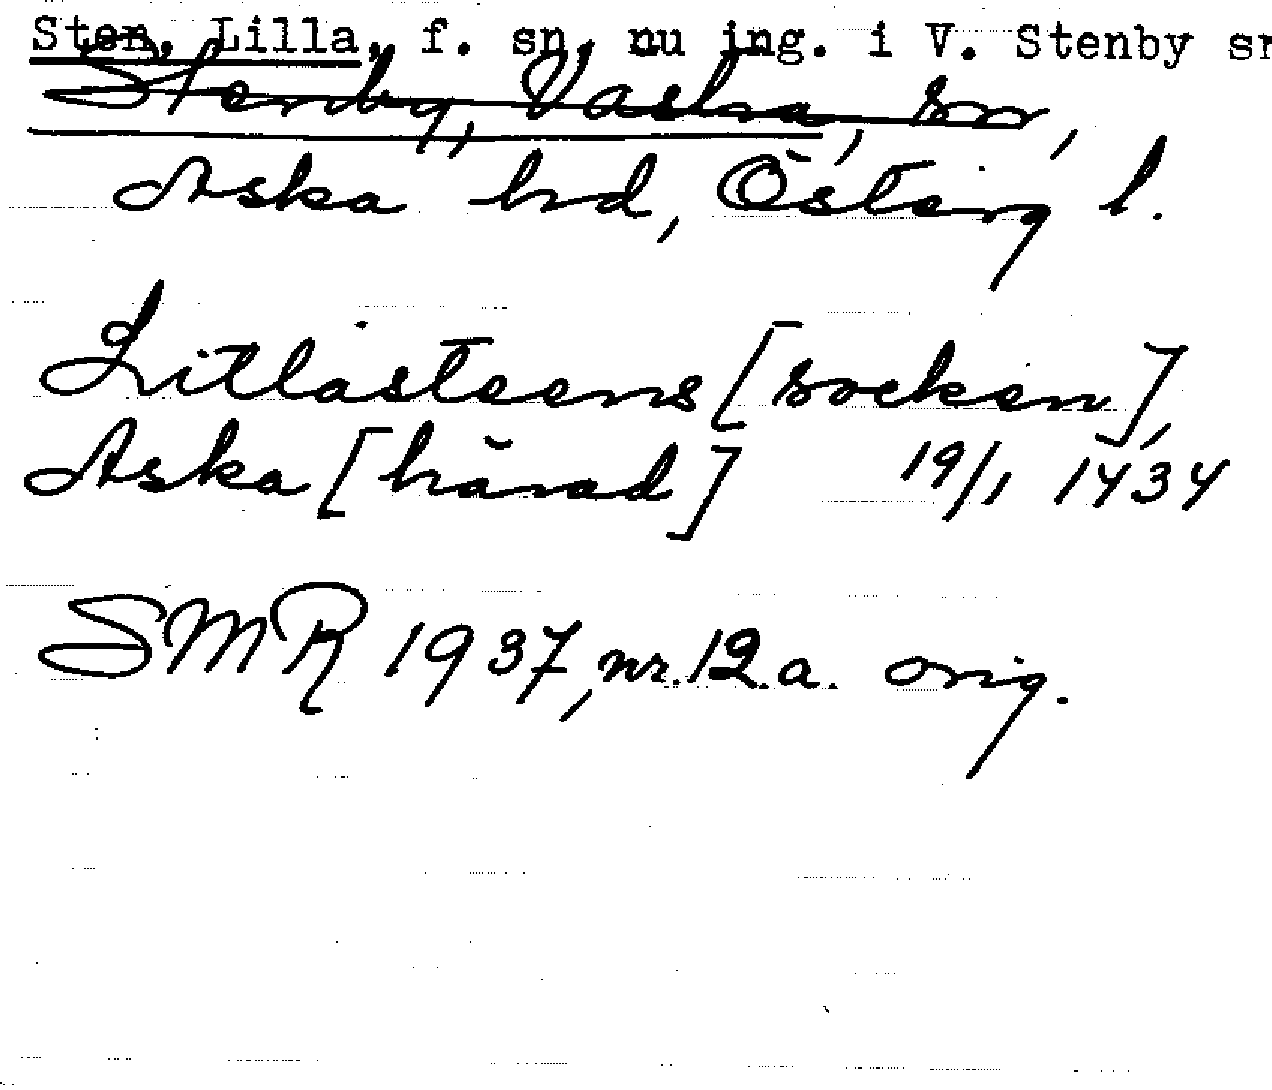 Sten, Lilla, f. sn, nu ing. i V. Stenby sn
Stenby, Västra, sn,
Aska hd, Österg l.
Litlasteens [socken],
Aska [härad] 19/1 1434
SMR 1937, nr. 12.a. orig.